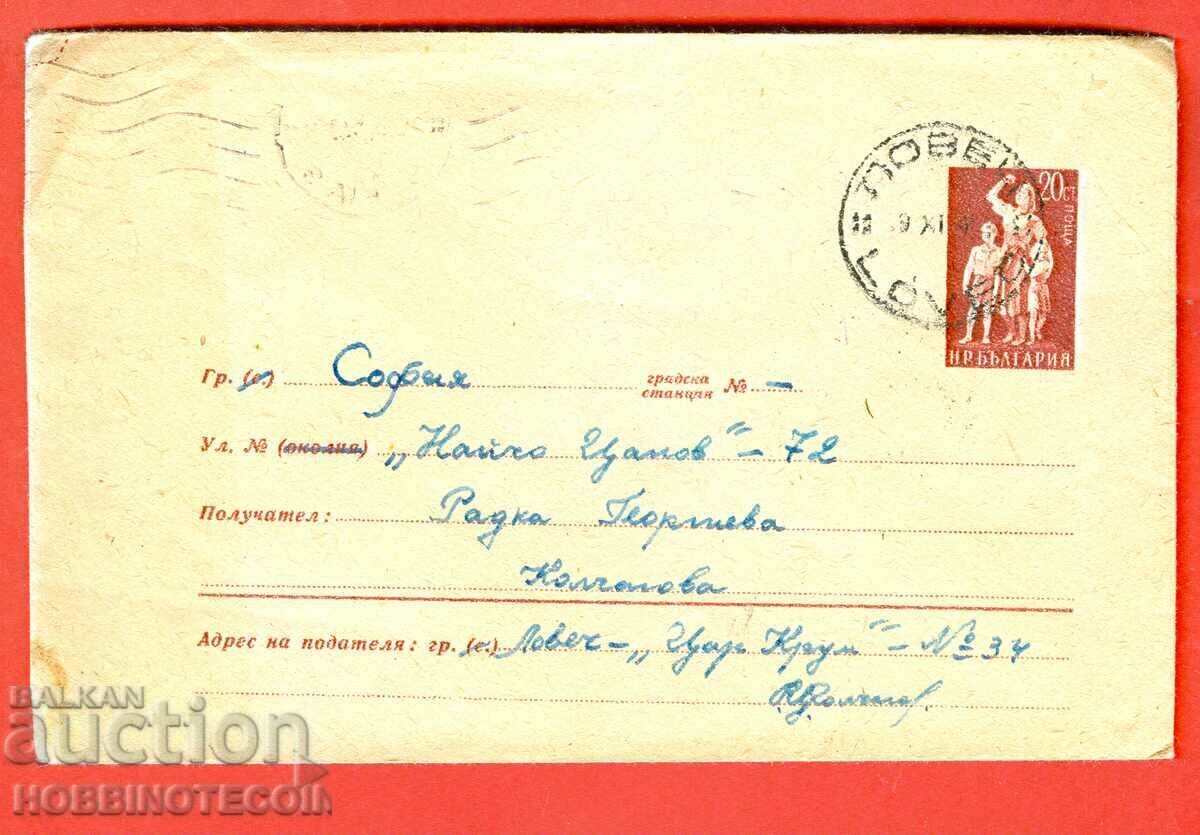 ЛОВЕЧ
9 XI
20 СТ.
ПОЩА
Н.Р. БЪЛГАРИЯ
Гр. (с.) София градска станция № –
Ул. № (околия) „Найчо Цанов" – 72
Получател: Радка Георгиева
Колчагова
Адрес на подателя: гр. (с.) Ловеч – „Цар Крум" – № 34
BALKAN
auction
HOBBINOTECOIN